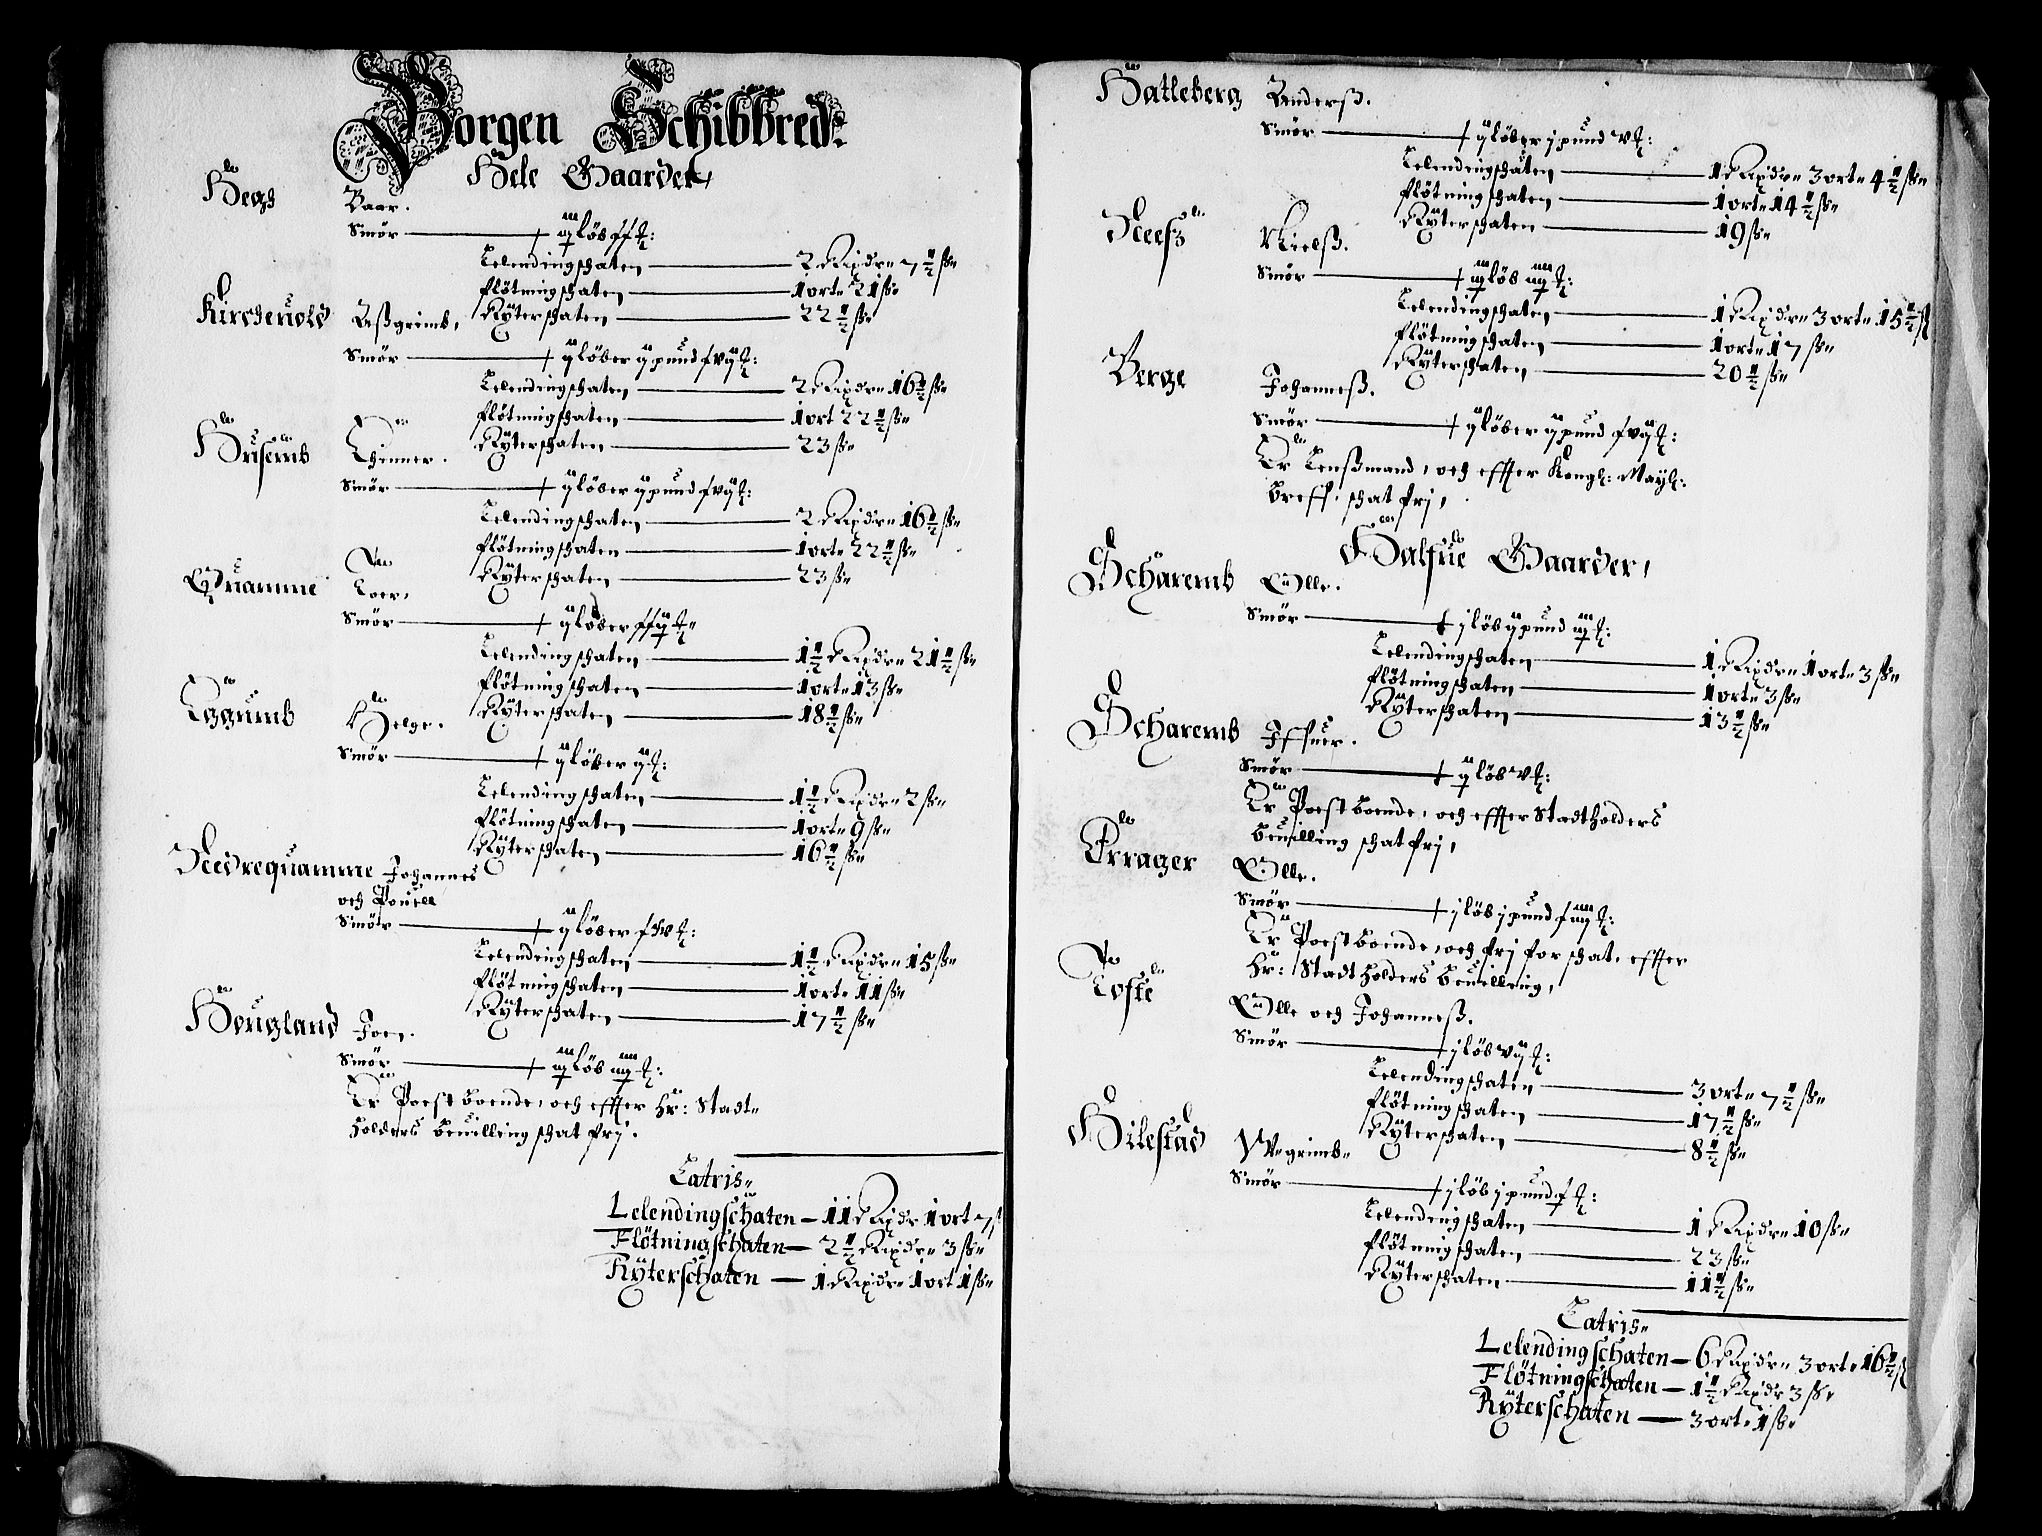 Borgen Schibbred:
Hele Gaarder,
Hegh Baar.
Smör + iij löb ff :
Lelendingschaten 2 Rixdr 7 1/2 ß
flötningschaten 1 ort 21 ß
Ryterschaten 22 1/2 ß
Kircheuold Aßgrimb,
Smör + ij löber ij pund f vij :
Lelendingschaten 2 Rixdr 16 1/2 ß
flötningschaten 1 ort 22 1/2 ß
Ryterschaten 23 ß
Husemb Ehinner.
Smör + ij löber ij pund f vij :
Lelendingschaten 2 Rixdr 16 1/2 ß
flötningschaten 1 ort 22 1/2 ß
Ryterschaten 23 ß
Quamme Toer,
Smör + ij löber ff ij
Lelendingschaten 1 1/2 Rixdr 21 1/2 ß
flötningschaten 1 ort 13 ß
Ryterschaten 18 1/2 ß
Eggumb Helge.
Smör + ij löber ij :
Lelendingschaten 1 1/2 Rixdr 2 ß
flötningschaten 1 ort 9 ß
Ryterschaten 16 1/2 ß
Needrequamme Johannes
och Pouell
Smör + ij löber f v :
Lelendingschaten 1 1/2 Rixdr 15 ß
flötningschaten 1 ort 11 ß
Ryterschaten 17 1/2 ß
Hougland Joen.
Smör + iij löb iiij :
Er Poestboende, och effter Hr: Stadt
holders beuilling schat frj.
Latris
Lelendingschaten 11 Rixdr 1 ort 7 ß
Flötningschaten 2 1/2 Rixdr 3 ß
Ryterschaten 1 Rixdr 1 ort 1 ß
Hatleberg Anderß.
Smör + ij löber j pund v :
Lelendingschaten 1 Rixdr 3 ort 4 1/2 ß
flötningschaten 1 ort 14 1/2 ß
Ryterschaten 19 ß
Neess Nielß.
Smör + iij löb iiij :
Lelendingschaten 1 Rixdr 3 ort 15 1/2 ß
flötningschaten 1 ort 17 ß
Ryterschaten 20 1/2 ß
Berge Johanneß.
Smör + ij löber ij pund f vij :
Er Lenßmand, och effter Kongl: Mayl:
breff, schat frj,
Halfue Gaarder,
Scharemb Olle.
Smör + j löb ij pund iij :
Lelendingschaten 1 Rixdr 1 ort 3 ß
flötningschaten 1 ort 3 ß
Ryterschaten 13 1/2 ß
Scharemb Iffuer.
Smör + ij löb v :
Er Poestboende, och effter Stadtholders
beuilling schat frj,
Errager Olle.
Smör + j löb j pund f iiij :
Er Poestboende, och frj for schat, effter
Hr: Stadtholders beuilling,
Tofte Olle och Johanneß.
Smör + j löb vij :
Lelendingschaten 3 ort 7 1/2 ß
flötningschaten 17 1/2 ß
Ryterschaten 8 1/2 ß
Hilestad Wegrimb
Smör + j löb j pund f :
Lelendingschaten 1 Rixdr 10 ß
flötningschaten 23 ß
Ryterschaten 11 1/2 ß
Latris
Lelendingschaten 6 Rixdr 3 ort 16 1/2 ß
Flötningschaten 1 1/2 Rixdr 3 ß
Ryterschaten 3 ort 1 ß